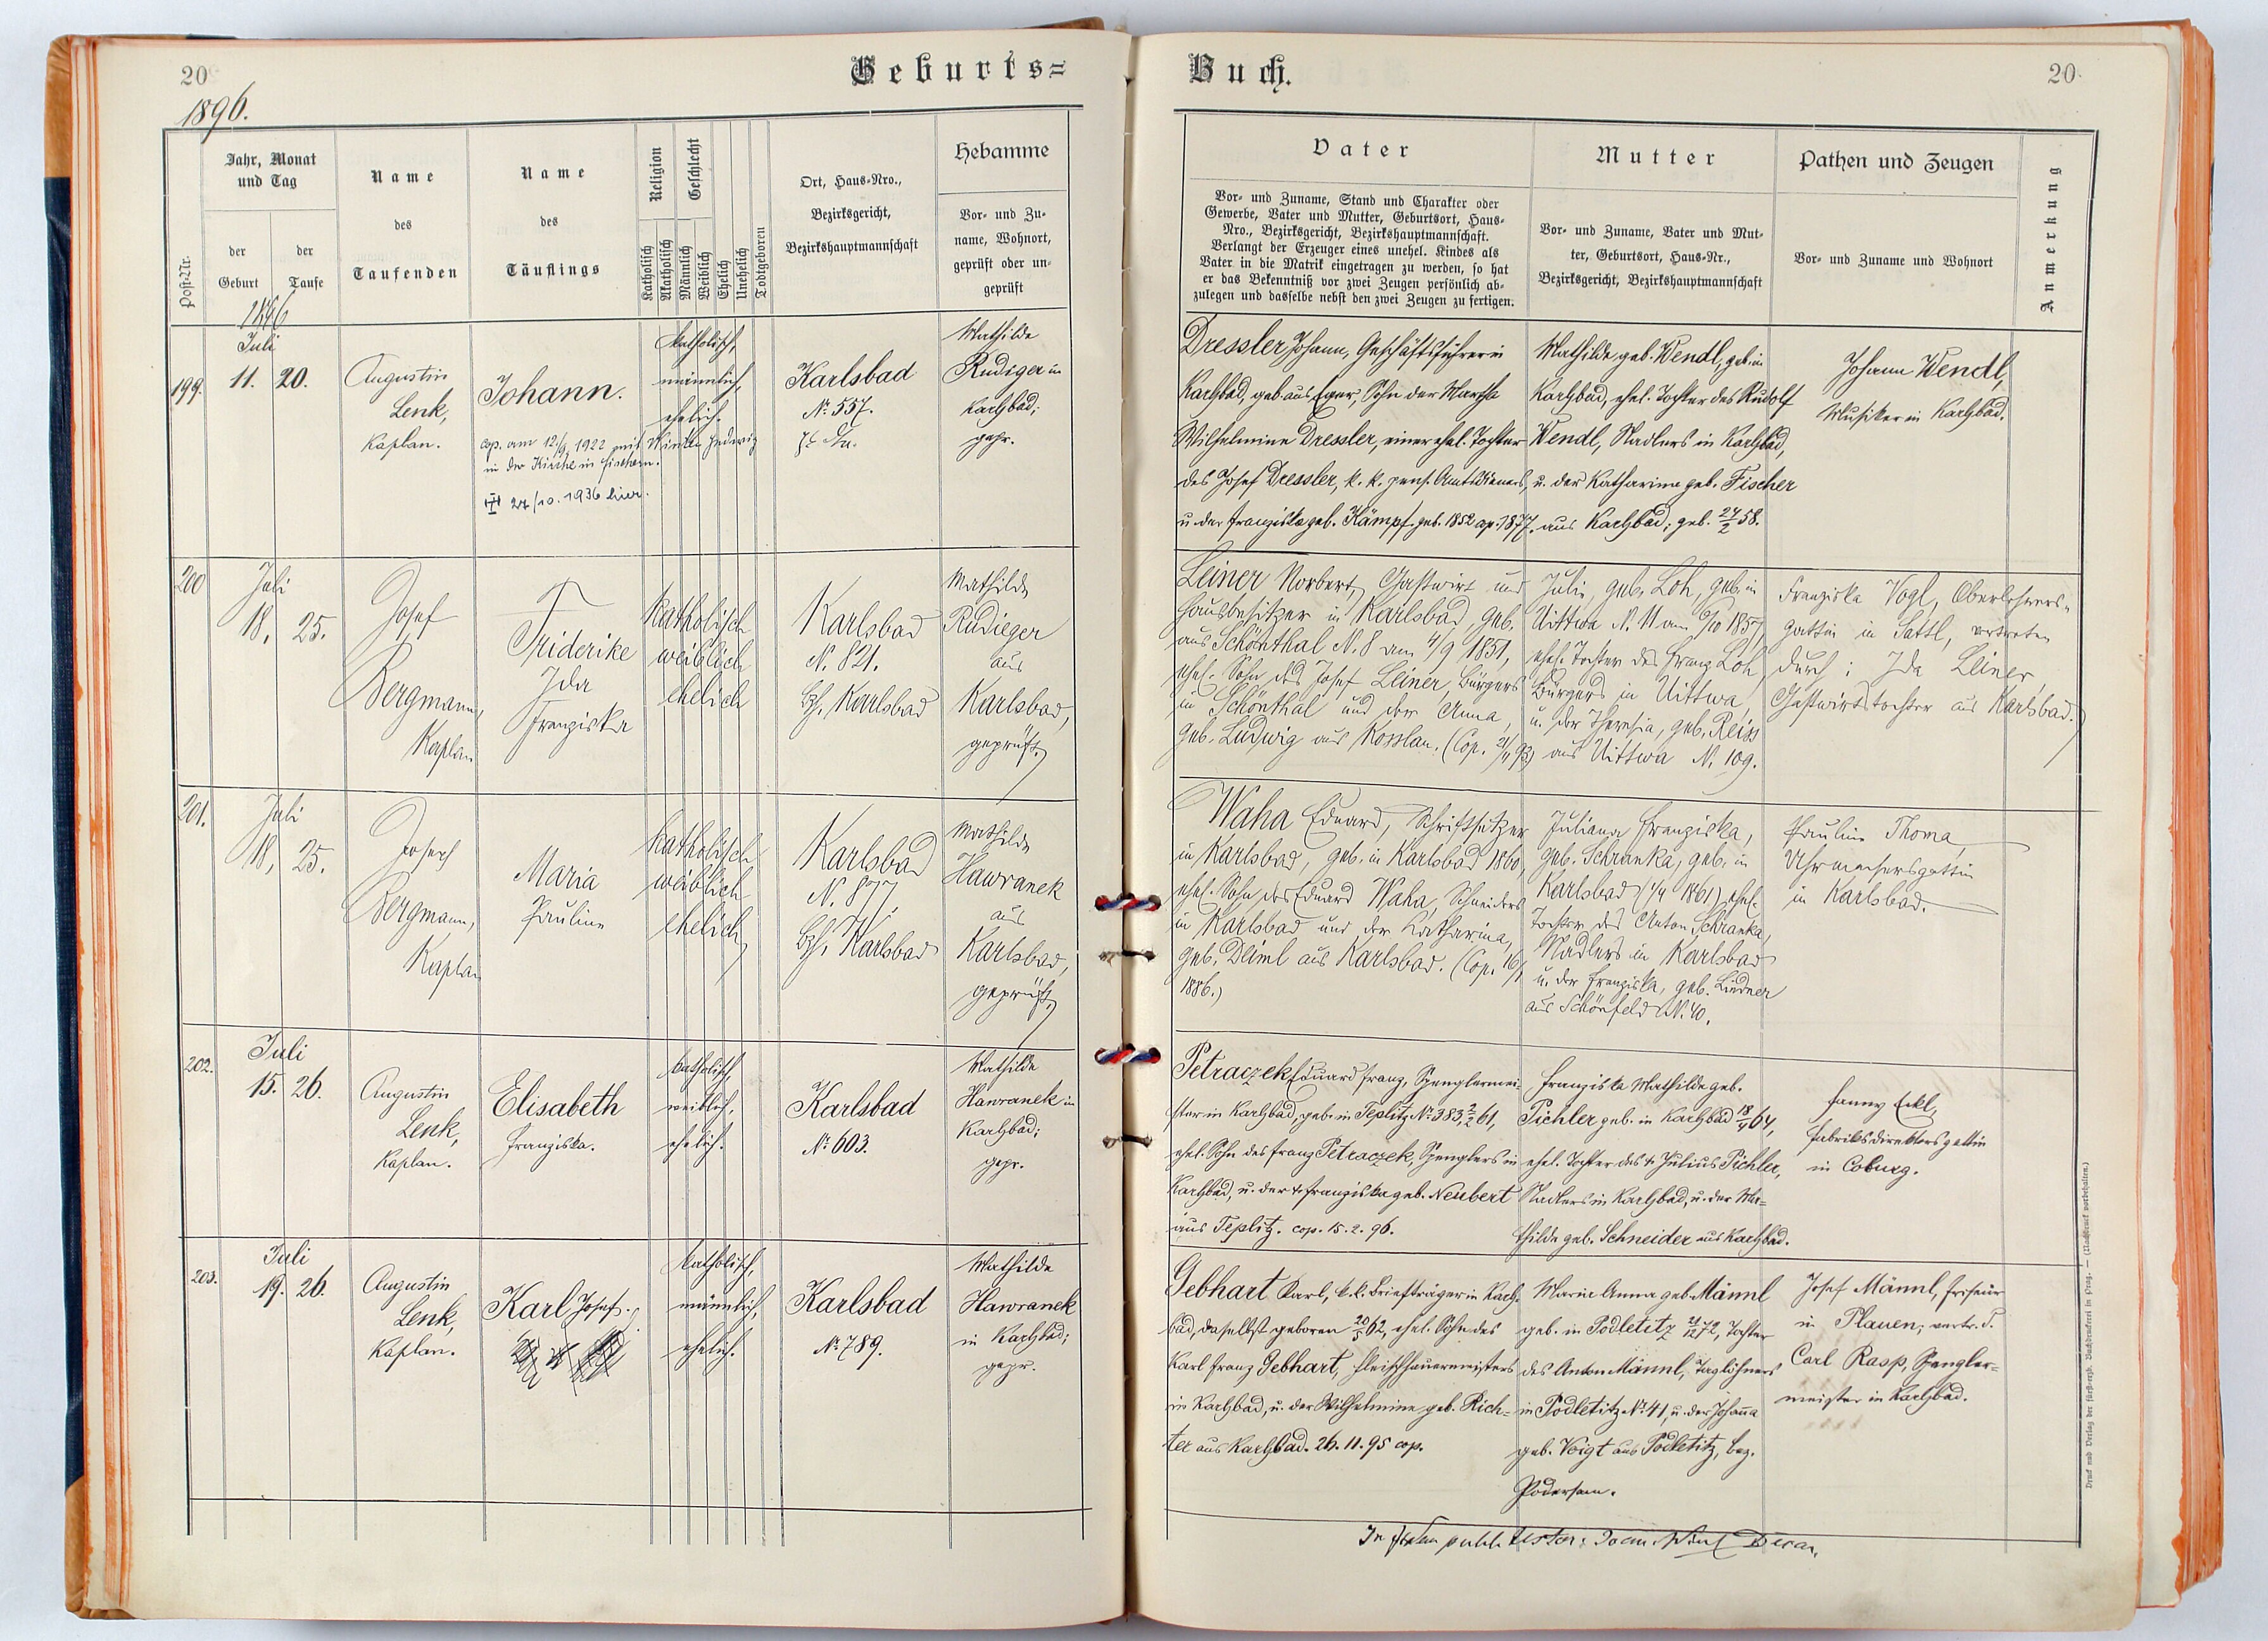 20
1896.
Geburts=
Jahr, Monat
und Tag
der
Geburt
der
Taufe
Post-Nr.
Name
des
Taufenden
Name
des
Täuflings
Religion
Geschlecht
Katholisch
Akatholisch
Männlich
Weiblich
Ehelich
Unehelich
Todtgeboren
Ort, Haus-Nro.,
Bezirksgericht,
Bezirkshauptmannschaft
Hebamme
Vor- und Zu-
name, Wohnort,
geprüft oder un-
geprüft
1896
Juli
199.
11. 20.
Augustin
Lenk,
Kaplan.
Johann.
cop. am 12./9. 1922 mit Hedwig
in der Kirche in Fischern.
27/10. 1936 hier.
katholisch,
männlich,
ehelich.
Karlsbad
No. 557.
Mathilde
Rudiger in
Karlsbad;
gepr.
200
Juli
18. 25.
Josef
Bergmann,
Kaplan
Friderike
Ida
Franziska
katholisch
weiblich
ehelich
Karlsbad
N. 821.
Bzh. Karlsbad
Mathilde
Rudieger
aus
Karlsbad,
geprüft
201.
Juli
18. 25.
Josef
Bergmann,
Kaplan
Maria
Pauline
katholisch
weiblich
ehelich
Karlsbad
N. 877.
Bzh. Karlsbad
Mathilde
Hawranek
aus
Karlsbad,
geprüft
202.
Juli
15. 26.
Augustin
Lenk,
Kaplan.
Elisabeth
Franziska.
katholisch,
weiblich,
ehelich.
Karlsbad
No. 603.
Mathilde
Hawranek in
Karlsbad;
gepr.
203.
Juli
19. 26.
Augustin
Lenk,
Kaplan.
Karl Josef.
katholisch,
männlich,
ehelich.
Karlsbad
No. 789.
Mathilde
Hawranek
in Karlsbad;
gepr.
Buch.
20
Vater
Vor- und Zuname, Stand und Charakter oder
Gewerbe, Vater und Mutter, Geburtsort, Haus-
Nro., Bezirksgericht, Bezirkshauptmannschaft.
Verlangt der Erzeuger eines unehel. Kindes als
Vater in die Matrik eingetragen zu werden, so hat
er das Bekenntniß vor zwei Zeugen persönlich ab-
zulegen und dasselbe nebst den zwei Zeugen zu fertigen.
Mutter
Vor- und Zuname, Vater und Mut-
ter, Geburtsort, Haus-Nr.,
Bezirksgericht, Bezirkshauptmannschaft
Pathen und Zeugen
Vor- und Zuname und Wohnort
Anmerkung
Dressler, Johann, Geschäftsführer in
Karlsbad, geb. aus Eger, Sohn der Martha
Wilhelmine Dressler, einer ehel. Tochter
des Josef Dressler, k. k. pens. Amtsdieners,
u. der Franziska geb. Kämpf. geb. 1852 cop. 1877.
Mathilde geb. Wendl, geb. in
Karlsbad, ehel. Tochter des Rudolf
Wendl, Nadlers in Karlsbad,
u. der Katharina geb. Fischer
aus Karlsbad; geb. 24/2 58.
Johann Wendl,
Musiker in Karlsbad.
Leiner Norbert, Gastwirt und
Hausbesitzer in Karlsbad, geb.
aus Schönthal N. 8 am 4/9 1851,
ehel. Sohn des Josef Leiner, Bürgers
in Schönthal und der Anna,
geb. Ludwig aus Kosslau. (Cop. 21/11 93)
Julie, geb. Loh, geb. in
Uittwa N. 11 am 9/10 1857
ehel. Tochter des Franz Loh,
Bürgers in Uittwa,
u. der Theresia, geb. Reiss
aus Uittwa N. 109.
Franziska Vogl, Oberlehrers-
gattin in Sattl, vertreten
durch: Ida Leiner,
Gastwirtstochter aus Karlsbad.
Waha Eduard, Schriftsetzer
in Karlsbad, geb. in Karlsbad 1860,
ehel. Sohn des Eduard Waha, Schneiders
in Karlsbad und der Katharina,
geb. Deiml aus Karlsbad. (Cop. 16/1
1886.)
Juliana Franziska,
geb. Schranka, geb. in
Karlsbad (1/4 1861), ehel.
Tochter des Anton Schranka,
Nadlers in Karlsbad
u. der Franziska, geb. Lindner
aus Schönfeld N. 40.
Pauline Thoma,
Uhrmachersgattin
in Karlsbad.
Petraczek Eduard Franz, Spenglermei-
ster in Karlsbad, geb. in Teplitz No. 383, 2/2 61,
ehel. Sohn des Franz Petraczek, Spenglers in
Karlsbad, u. der + Franziska geb. Neubert
aus Teplitz. cop. 15. 2. 96.
Franziska Mathilde geb.
Pichler geb. in Karlsbad 18/4 64,
ehel. Tochter des + Julius Pichler,
Nadlers in Karlsbad, u. der Ma-
thilde geb. Schneider aus Karlsbad.
Fanny Eckl,
Fabriksdirektorsgattin
in Coburg.
Gebhart Karl, k. k. Briefträger in Karls-
bad, daselbst geboren 20/5 62, ehel. Sohn des
Karl Franz Gebhart, Fleischhauermeisters
in Karlsbad, u. der Wilhelmine geb. Rich-
ter aus Karlsbad. 26. 11. 95 cop.
Maria Anna geb. Männl
geb. in Podletitz 21/12 72, Tochter
des Anton Männl, Taglöhners
in Podletitz No. 41, u. der Johanna
geb. Voigt aus Podletitz, Bez.
Podersam.
Josef Männl, Friseur
in Plauen; vertr. d.
Carl Rasp, Spengler-
meister in Karlsbad.
Druck und Verlag der fürst-erzb. Buchdruckerei in Prag. — (Nachdruck vorbehalten.)